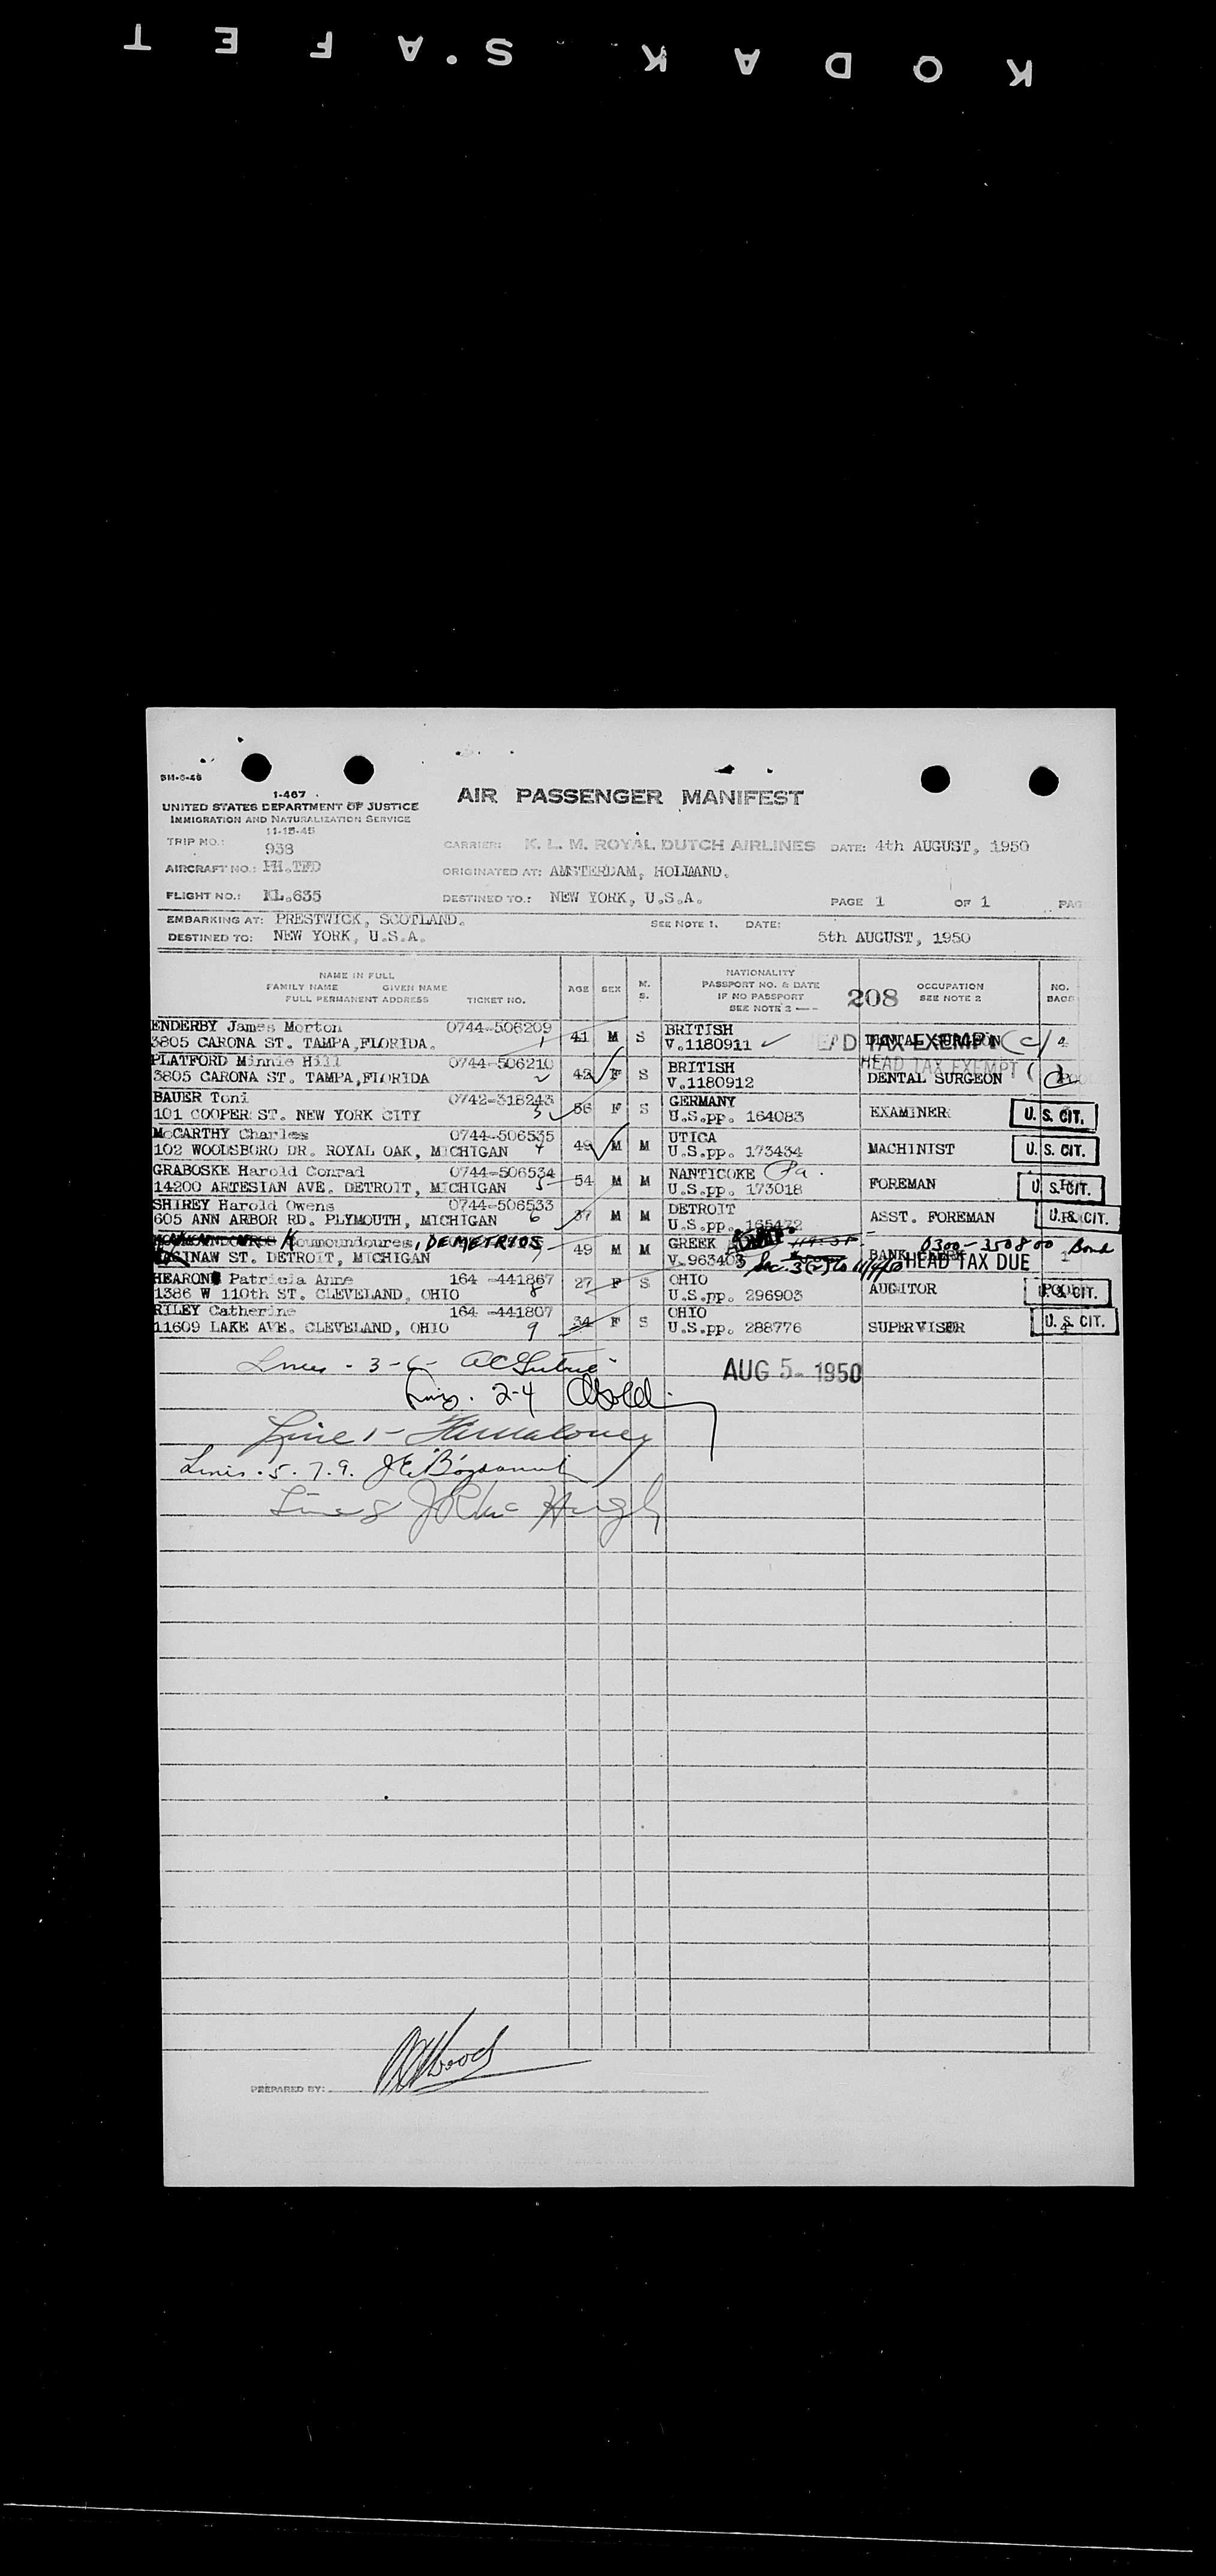 KODAK S'AFET
SM-6-46
1-467
UNITED STATES DEPARTMENT OF JUSTICE
IMMIGRATION AND NATURALIZATION SERVICE
11-15-45
AIR PASSENGER MANIFEST
TRIP NO.: 938
CARRIER: K. L. M. ROYAL DUTCH AIRLINES DATE: 4th AUGUST, 1950
AIRCRAFT NO.: PH.TED
ORIGINATED AT: AMSTERDAM, HOLLAND.
FLIGHT NO.: KL.635
DESTINED TO.: NEW YORK, U.S.A. PAGE 1 OF 1
EMBARKING AT: PRESTWICK, SCOTLAND. SEE NOTE 1. DATE:
DESTINED TO: NEW YORK, U.S.A. 5th AUGUST, 1950
NAME IN FULL
FAMILY NAME GIVEN NAME
FULL PERMANENT ADDRESS TICKET NO.
AGE SEX M. S.
NATIONALITY
PASSPORT NO. & DATE
IF NO PASSPORT
SEE NOTE 2
208
OCCUPATION
SEE NOTE 2
NO. BAGS
ENDERBY James Morton 0744-506209 41 M S BRITISH DENTAL SURGEON
3805 CARONA ST. TAMPA,FLORIDA. 1 V.1180911 HEAD TAX EXEMPT (c) 4
PLATFORD Minnie Hill 0744-506210 42 F S BRITISH HEAD TAX EXEMPT
3805 CARONA ST. TAMPA,FLORIDA 2 V.1180912 DENTAL SURGEON
BAUER Toni 0742-318243 56 F S GERMANY
101 COOPER ST. NEW YORK CITY 3 U.S.pp. 164083 EXAMINER U. S. CIT.
McCARTHY Charles 0744-506535 49 M M UTICA
102 WOODSBORO DR. ROYAL OAK, MICHIGAN 4 U.S.pp. 173434 MACHINIST U. S. CIT.
GRABOSKE Harold Conrad 0744-506534 54 M M NANTICOKE Pa.
14200 ARTESIAN AVE. DETROIT, MICHIGAN 5 U.S.pp. 173018 FOREMAN U. S. CIT.
SHIREY Harold Owens 0744-506533 37 M M DETROIT
605 ANN ARBOR RD. PLYMOUTH, MICHIGAN 6 U.S.pp. 165472 ASST. FOREMAN U. S. CIT.
Koumoundoures, DEMETRIOS 49 M M GREEK 0300-350800 Bond
SAGINAW ST. DETROIT, MICHIGAN 7 V.963403 BANK HEAD TAX DUE
HEARON Patricia Anne 164 -441867 27 F S OHIO
1386 W 110th ST. CLEVELAND, OHIO 8 U.S.pp. 296903 AUDITOR U. S. CIT.
RILEY Catherine 164 -441807 34 F S OHIO
11609 LAKE AVE. CLEVELAND, OHIO 9 U.S.pp. 288776 SUPERVISOR U. S. CIT.
Lines - 3-6-
AUG 5- 1950
2-4
Line 1- Maloney
Lines. 5. 7. 9. J.E.
Line 8 J R Mc Hugh
PREPARED BY: